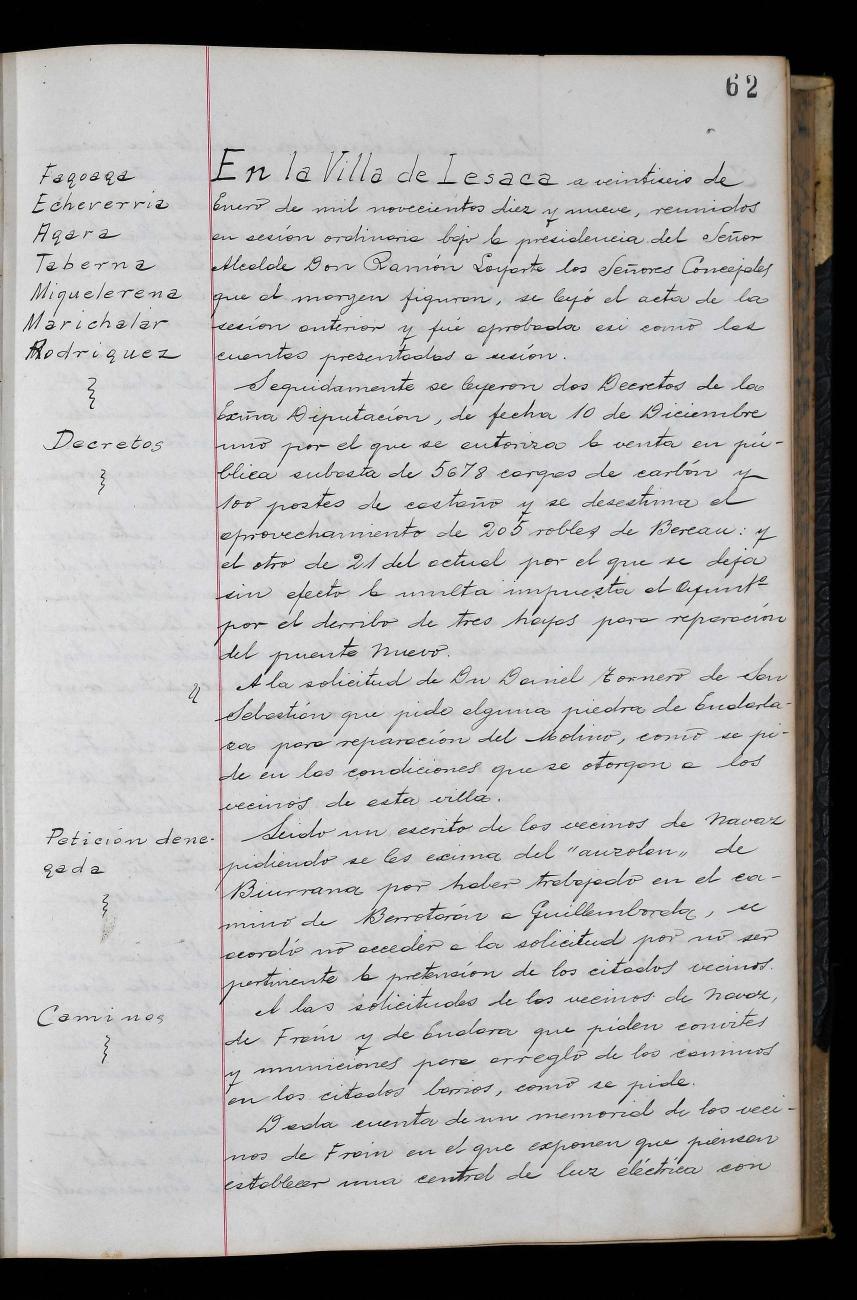 62
Fagoaga
Echeverria
Agara
Taberna
Miquelerena
Marichalar
Rodriguez
En la Villa de Lesaca a veintiseis de
Enero de mil novecientos diez y nueve, reunidos
en sesión ordinaria bajo la presidencia del Señor
Alcalde Don Ramón Loyarte los Señores Concejales
que al margen figuran, se leyó el acta de la
sesión anterior y fué aprobada asi como las
cuentas presentadas a sesión.
Decretos
Seguidamente se leyeron dos Decretos de la
Exma Diputación, de fecha 10 de Diciembre
uno por el que se autoriza la venta en pú-
blica subasta de 5678 cargas de carbón y
100 postes de castaño y se desestima el
aprovechamiento de 205 robles de Bereau: y
el otro de 21 del actual por el que se deja
sin efecto la multa impuesta al Ayuntº
por el derribo de tres hayas para reparación
del puente Nuevo.
A la solicitud de Dn Daniel Tornero de San
Sebastián que pide alguna piedra de Endarla-
za para reparación del Molino, como se pi-
de en las condiciones que se otorgan a los
vecinos de esta villa.
Petición dene-
gada
Leido un escrito de los vecinos de Navaz
pidiendo se les exima del "auzolan" de
Biurrana por haber trabajado en el ca-
mino de Berrotarán a Guillemborda, se
acordó no acceder a la solicitud por no ser
pertinente la pretensión de los citados vecinos.
Caminos
A las solicitudes de los vecinos de Navaz,
de Frain y de Endara que piden convites
y municiones para arreglo de los caminos
en los citados barrios, como se pide.
Dada cuenta de un memorial de los veci-
nos de Frain en el que exponen que piensan
establecer una central de luz eléctrica con